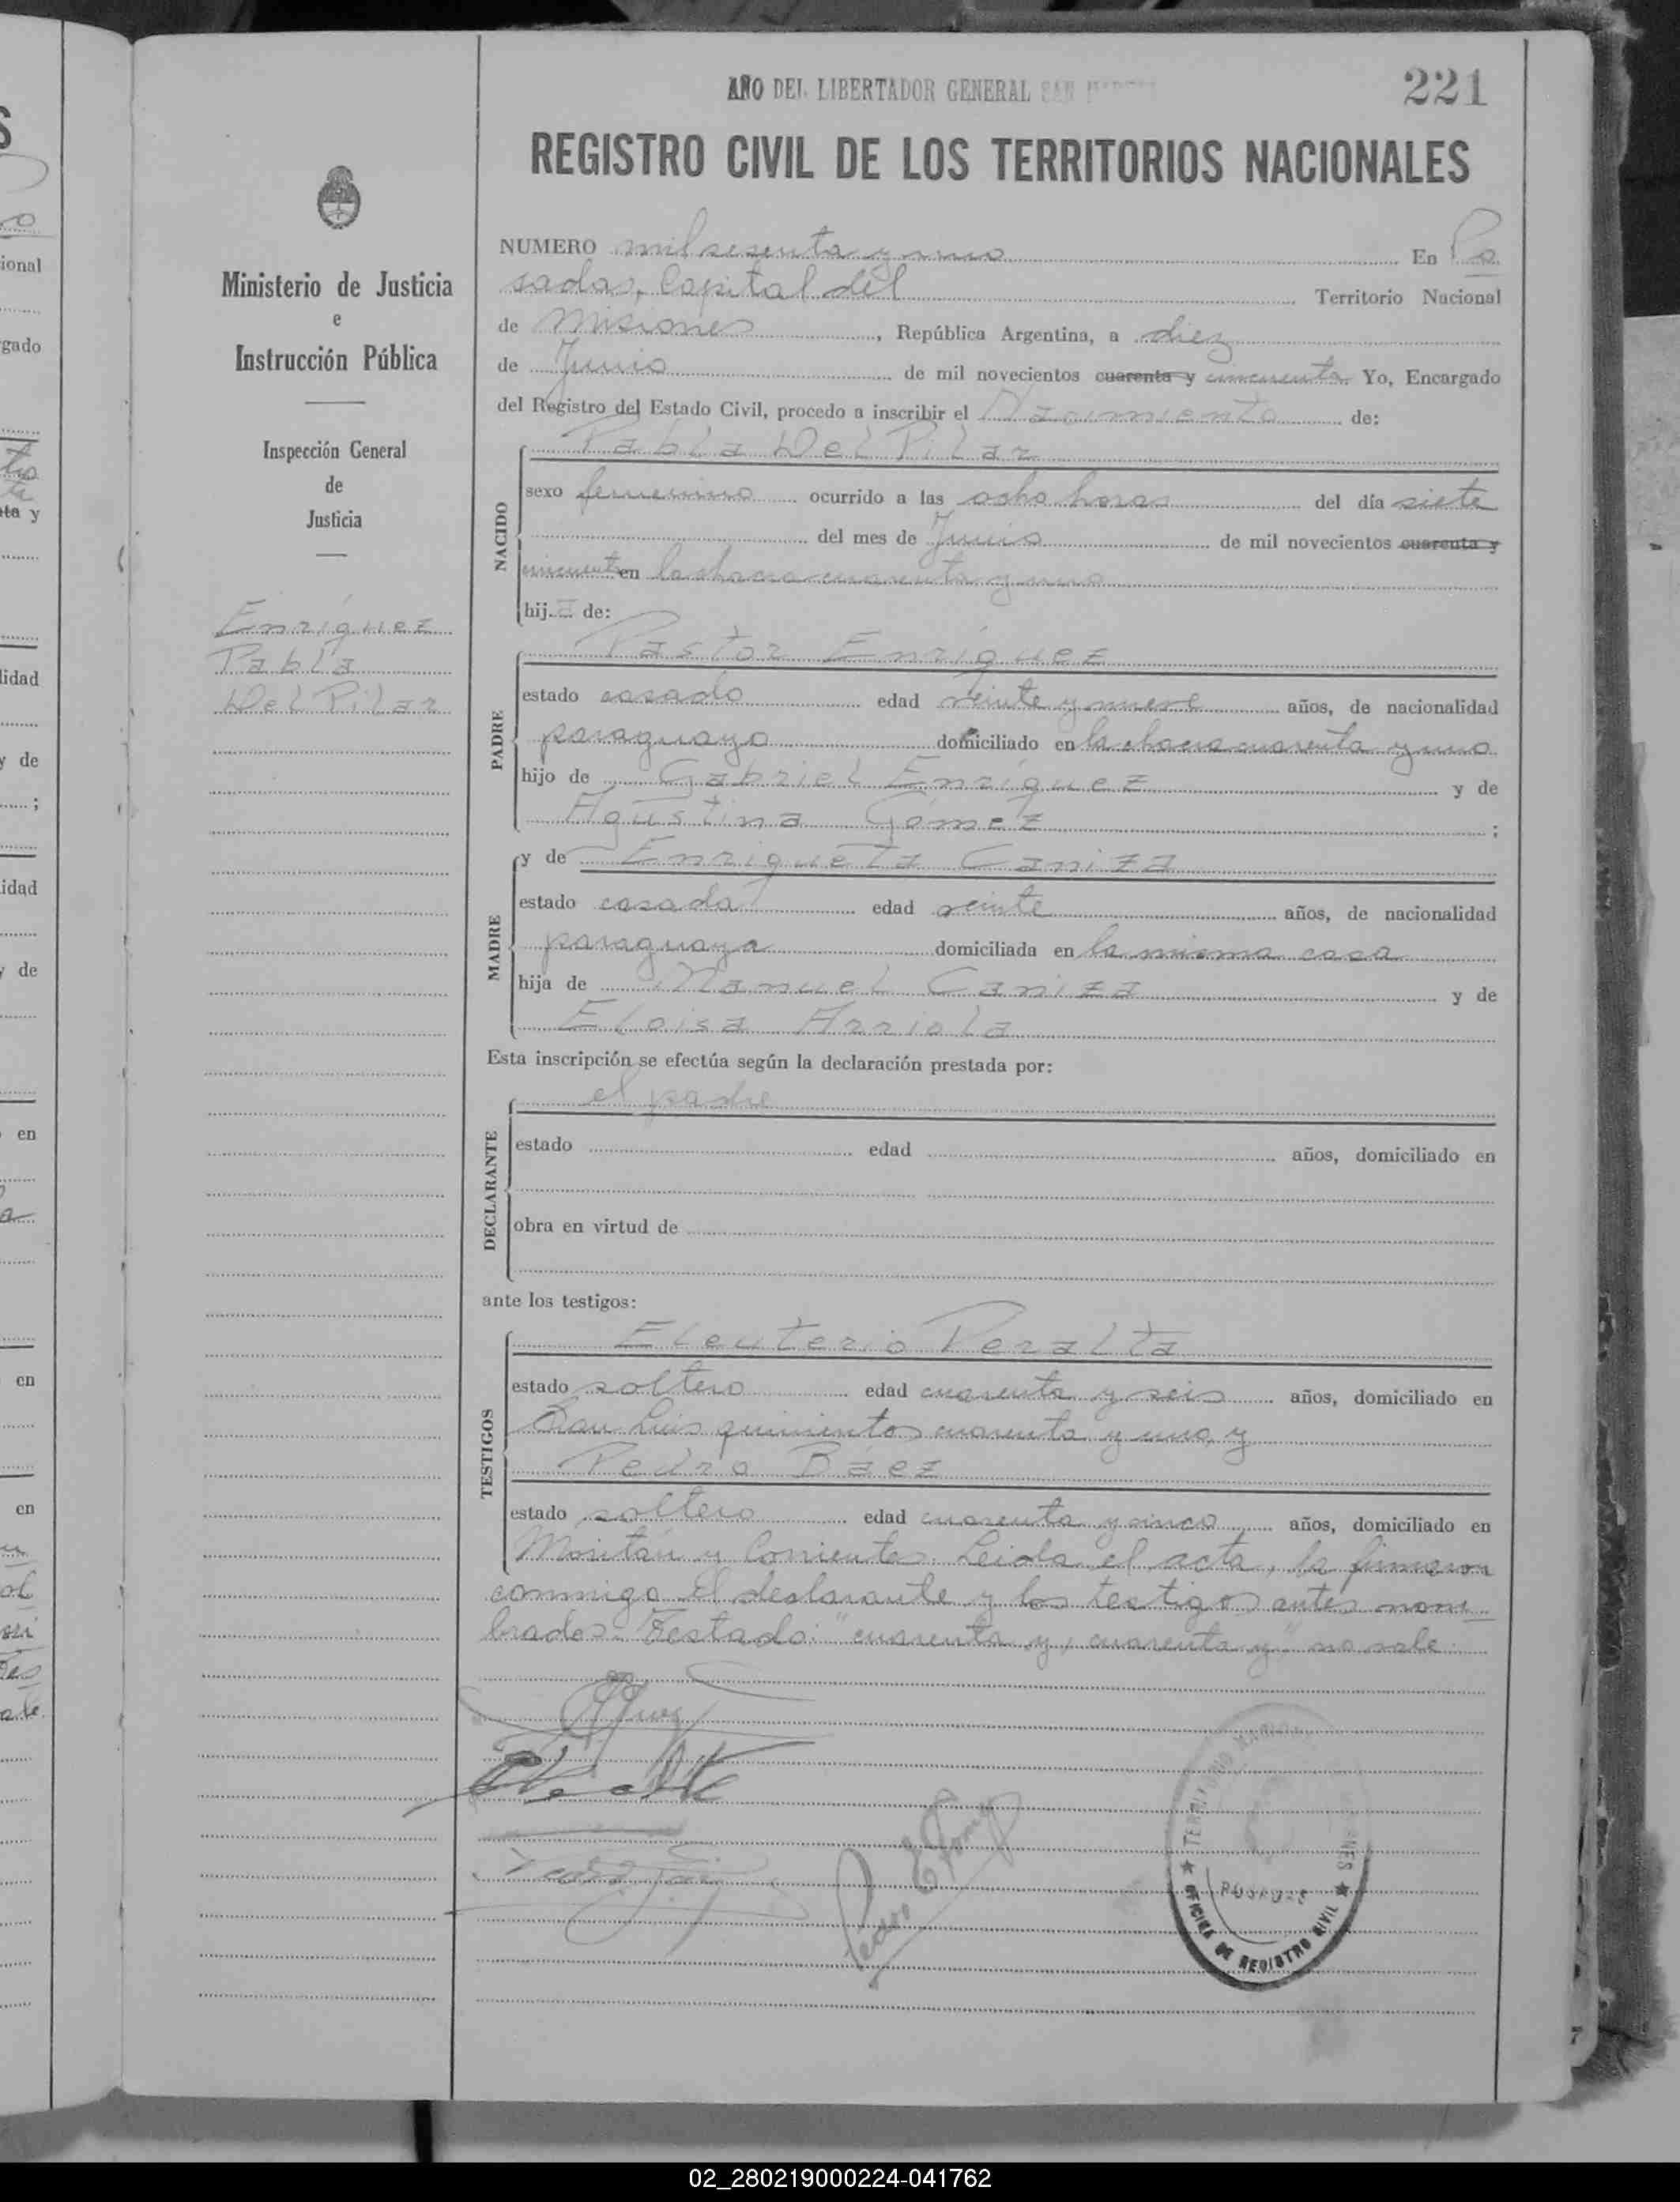 AÑO DEL LIBERTADOR GENERAL SAN MARTIN
221
REGISTRO CIVIL DE LOS TERRITORIOS NACIONALES
Ministerio de Justicia
e
Instrucción Pública
Inspección General
de
Justicia
Enríquez
Pabla
Del Pilar
NUMERO mil sesenta y uno En Po
sadas, Capital del Territorio Nacional
de Misiones, República Argentina, a diez
de Junio de mil novecientos cuarenta y cincuenta Yo, Encargado
del Registro del Estado Civil, procedo a inscribir el Nacimiento de:
Pabla Del Pilar
NACIDO
sexo femenino ocurrido a las ocho horas del día siete
del mes de Junio de mil novecientos cuarenta y
cincuenta en la chacra cuarenta y uno
hija de:
Pastor Enríquez
PADRE
estado casado edad veinte y nueve años, de nacionalidad
paraguayo domiciliado en la chacra cuarenta y uno
hijo de Gabriel Enríquez y de
Agustina Gómez ;
y de Enriqueta Caniza
MADRE
estado casada edad veinte años, de nacionalidad
paraguaya domiciliada en la misma casa
hija de Manuel Caniza y de
Eloisa Arriola
Esta inscripción se efectúa según la declaración prestada por:
el padre
DECLARANTE
estado edad años, domiciliado en
obra en virtud de
ante los testigos:
Eleuterio Peralta
TESTIGOS
estado soltero edad cuarenta y seis años, domiciliado en
San Luis quinientos cuarenta y uno, y
Pedro Báez
estado soltero edad cuarenta y cinco años, domiciliado en
y Corrientes. Leida el acta, la firmaron
conmigo el declarante y los testigos antes nom
brados. Testado: "cuarenta y, cuarenta y" no vale
TERRITORIO NACIONAL
POSADAS
OFICINA DE REGISTRO CIVIL
02_280219000224-041762